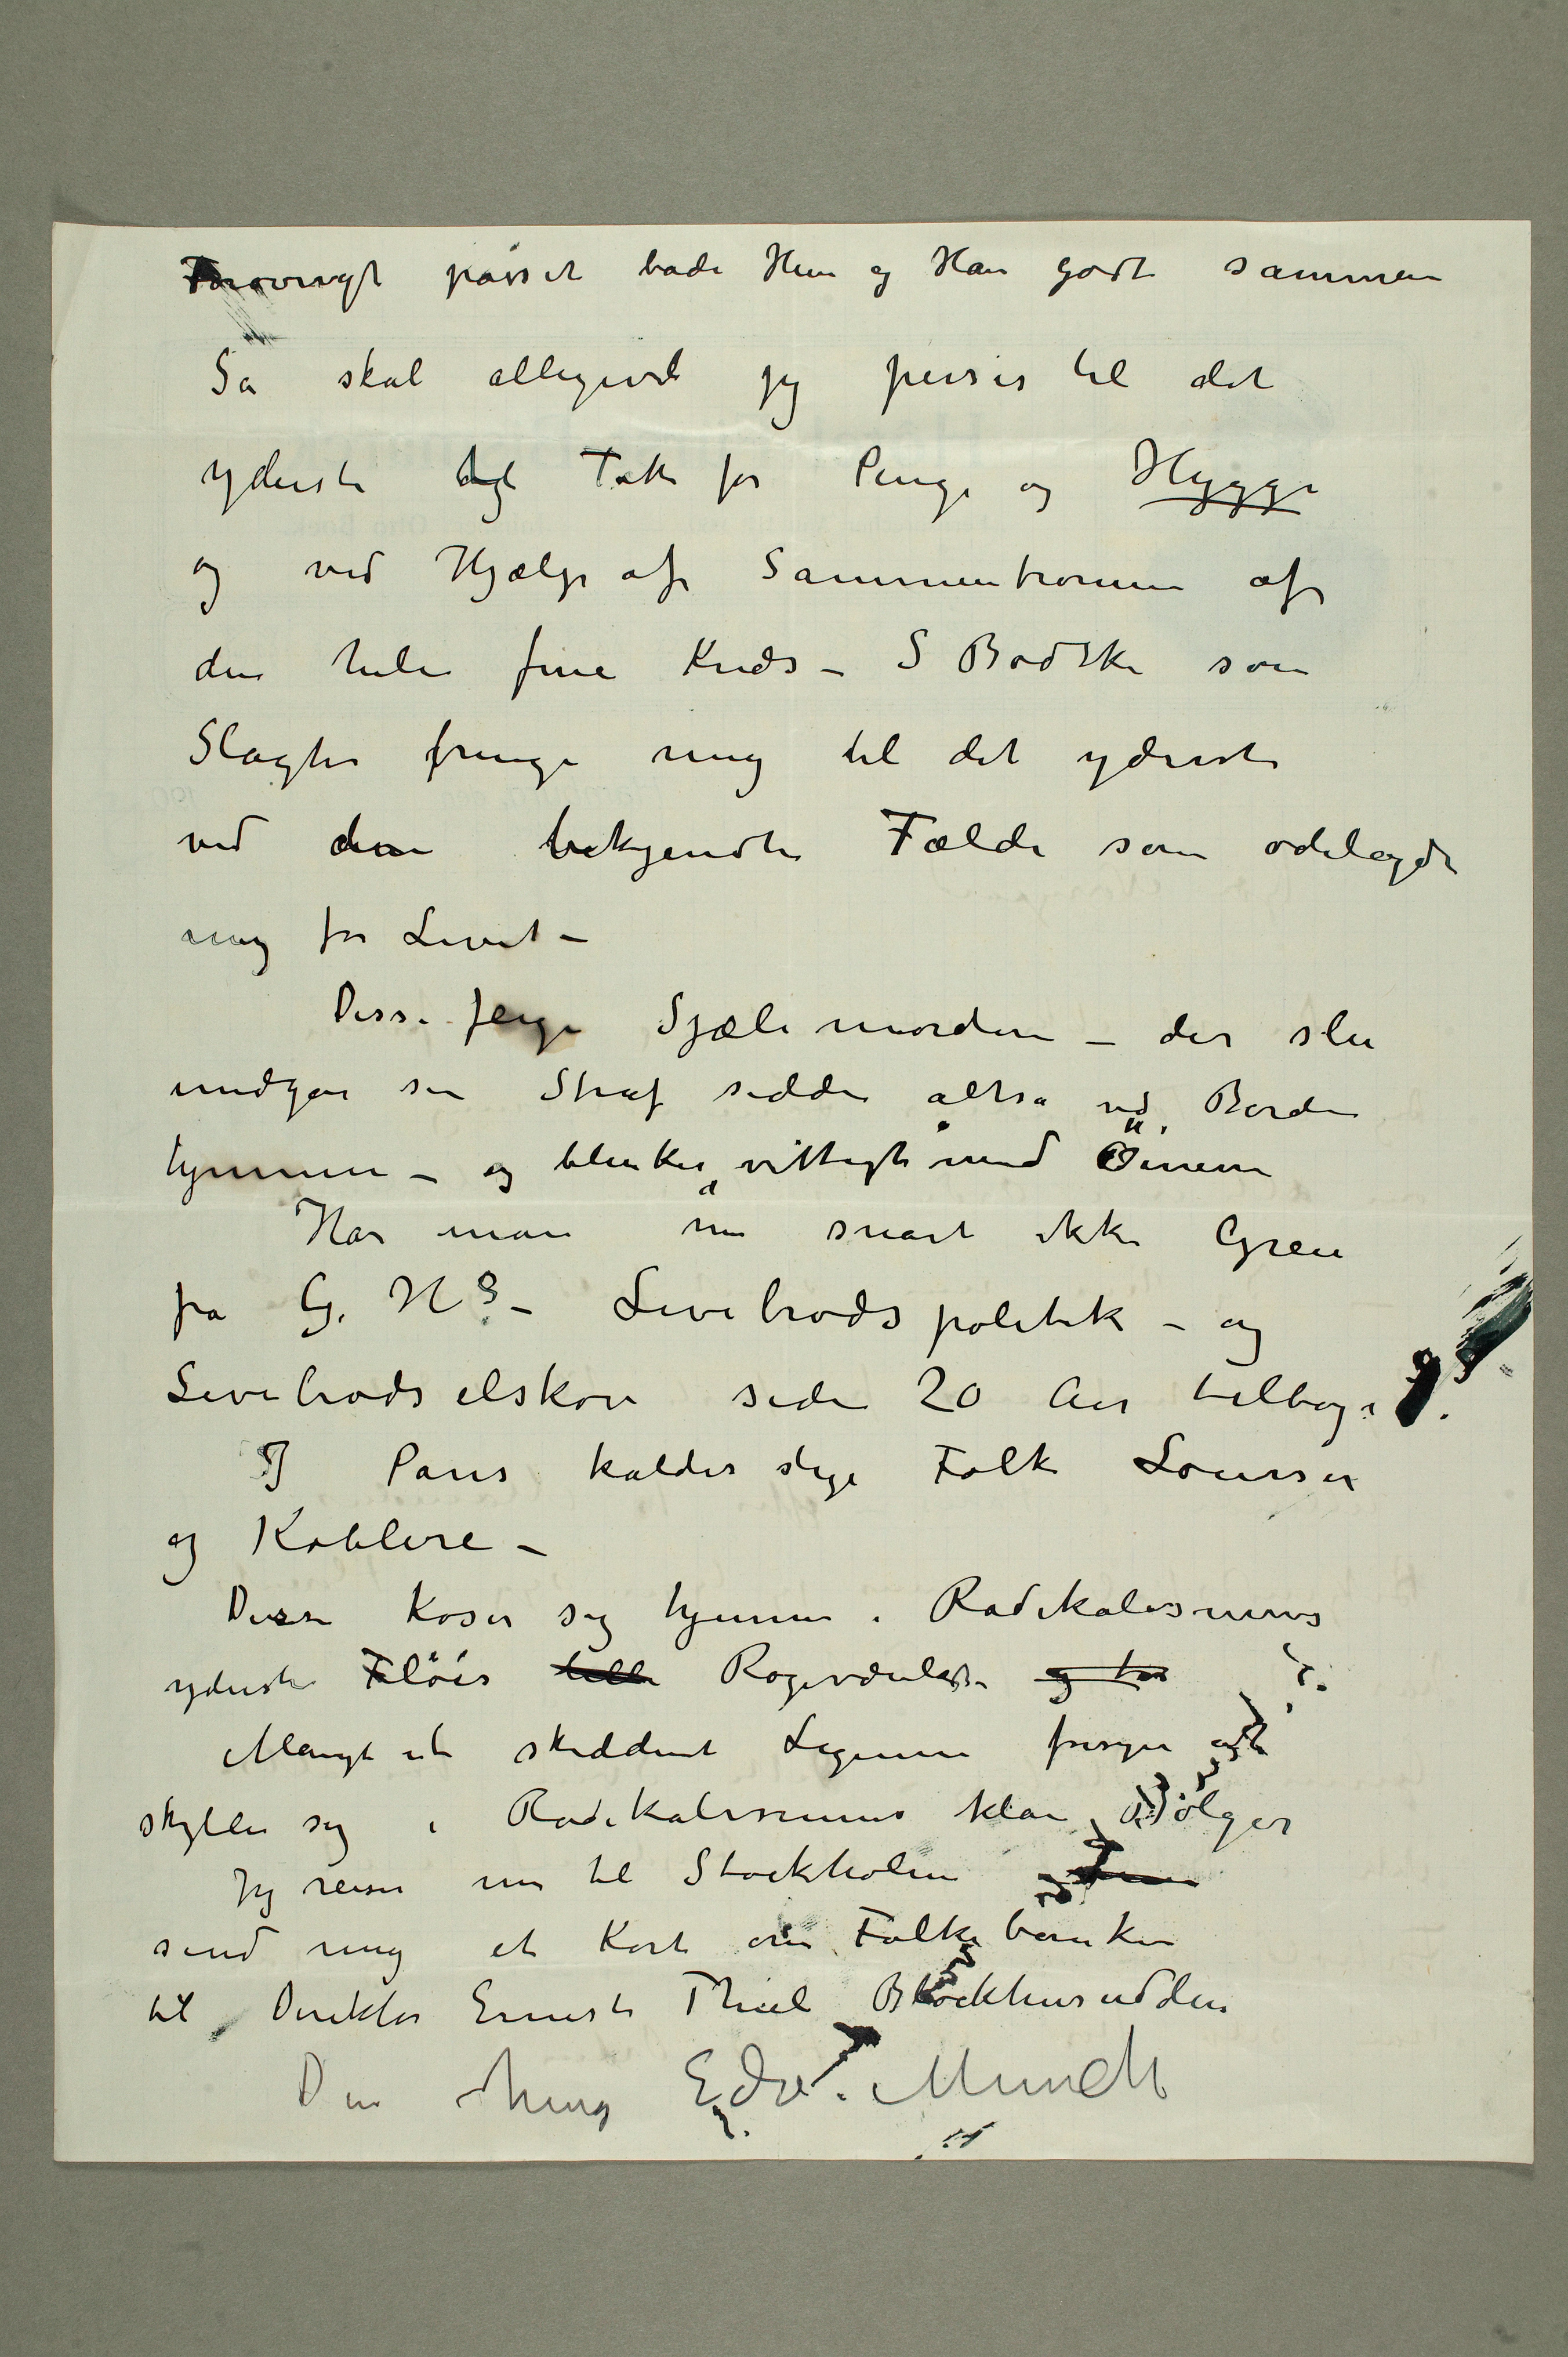 Forøvrigt passer både Hun og Han godt sammen
Så skal alligevel jeg perses til det
yderste Tak for Penge og Hygge
og ved Hjælp af Sammentrommen af
den hele fine Kreds – S Bødtker som
Slagter fange mig til det yderste
ved den bekjendte Fælde som ødelagde
mig for Livet –
Disse feige Sjælemordere – der slu
undgår sin Straf sidder altså ved Bordene
hjemme – og blinker vittigt med Öinene
Har man nu snart ikke Greie
på G. H.s – Levebrødspolitik – og
Levebrødselskov siden 20 Aar tilbage
I Paris kaldes slige Folk
og Koblere –
Disse koser sig hjemme i Radikalismens
yderste Fløi
Mangt et skiddent Legeme
skyller sig i Radikalismens klare Bølger
Jeg reiser nu til Stockholm
send mig et Kort om Folkebanken
til Direktør Ernest Thiel Blockhusudden
Din heng Edv. Munch